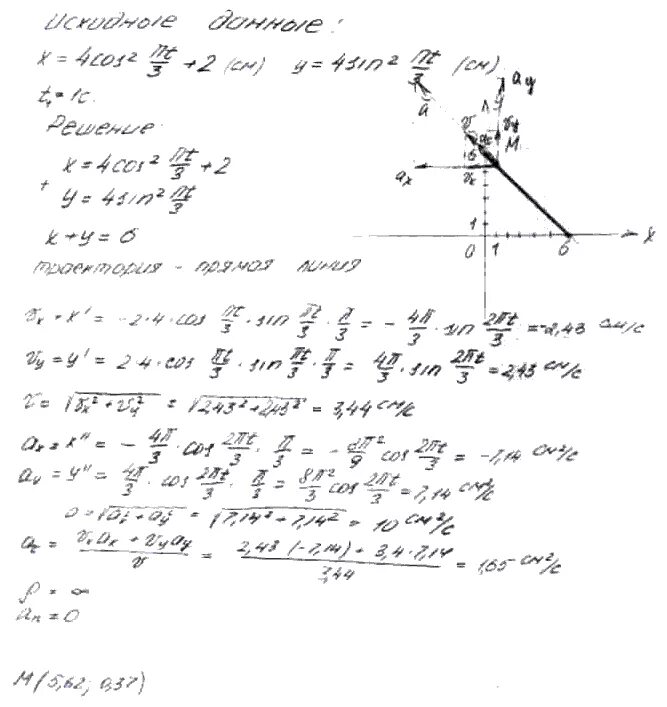 Исходные данные:
x = 4cos² πt/3 + 2 (см) y = 4sin² πt/3 (см)
t₁ = 1c.
Решение
x = 4cos² πt/3 + 2
+
y = 4sin² πt/3
x + y = 6
траектория - прямая линия
a ay y v vy M 6 vx ax
1 0 1 6 x
vx = x' = -2·4·cos πt/3 · sin πt/3 · π/3 = - 4π/3 · sin 2πt/3 = -2,43 см/с
vy = y' = 2·4·cos πt/3 · sin πt/3 · π/3 = 4π/3 · sin 2πt/3 = 2,43 см/с
v = √vx² + vy² = √2,43² + 2,43² = 3,44 см/с
ax = x'' = - 4π/3 · cos 2πt/3 · π/3 = - 8π²/9 cos 2πt/3 = -7,14 см²/с
ay = y'' = 4π/3 · cos 2πt/3 · π/3 = 8π²/3 cos 2πt/3 = 7,14 см²/с
a = √ax² + ay² = √7,14² + 7,14² = 10 см²/с
aτ = vx ax + vy ay / v = 2,43 (-7,14) + 3,4·7,14 / 3,44 = 1,65 см²/с
ρ = ∞
an = 0
M (5,62; 0,37)